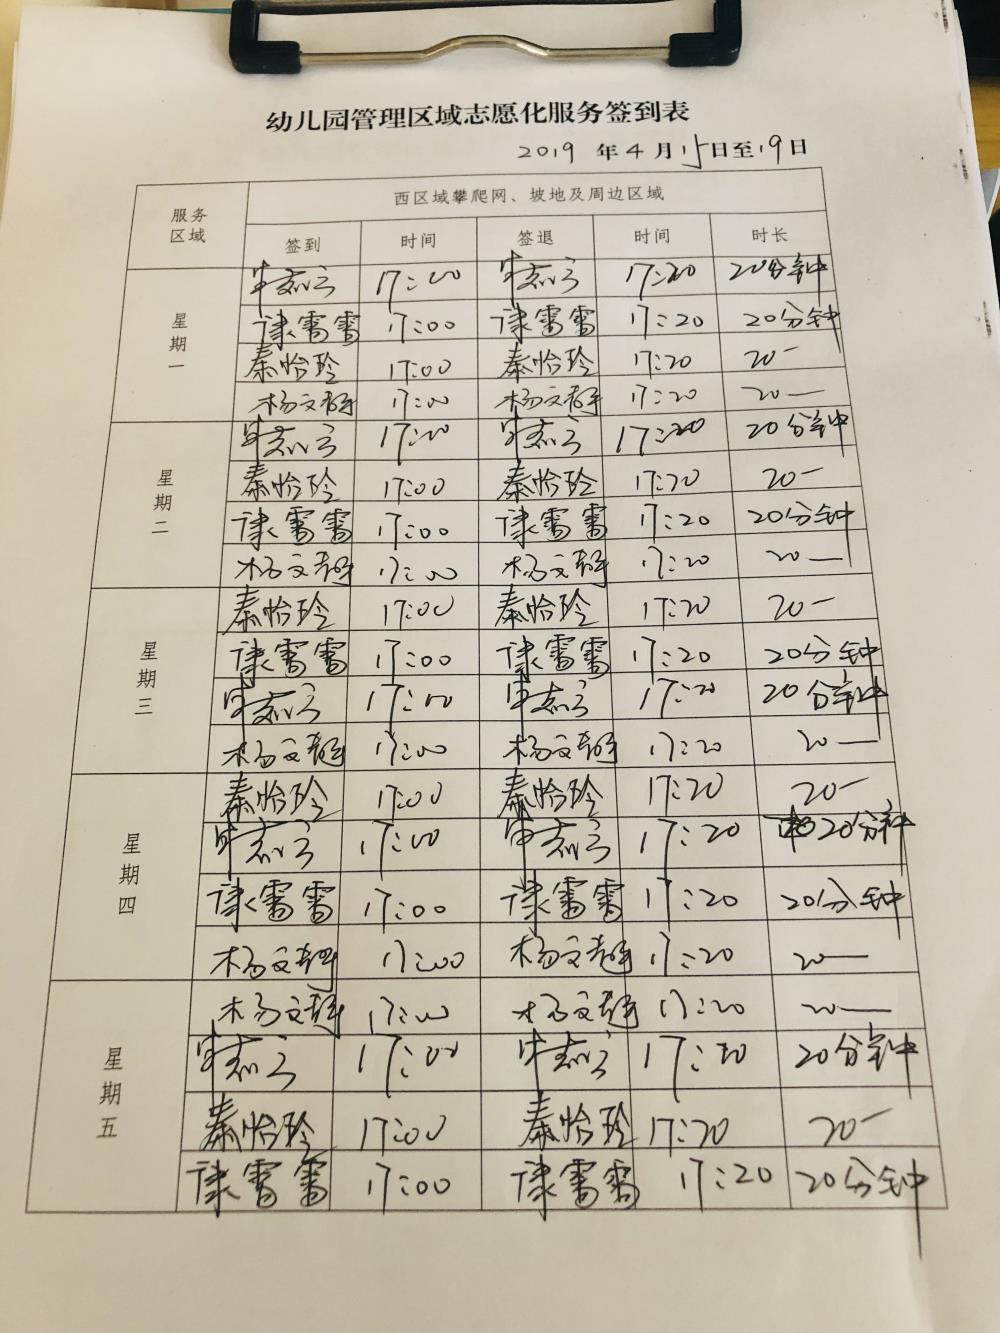 幼儿园管理区域志愿化服务签到表
2019 年 4 月 15日至19日
服务区域 西区域攀爬网、坡地及周边区域
签到 时间 签退 时间 时长
星期一
17:00 17:20 20分钟
谏雷雷 17:00 谏雷雷 17:20 20分钟
秦怡玲 17:00 秦怡玲 17:20 20一
杨文 17:00 杨文 17:20 20一
星期二
17:00 17:20 20分钟
秦怡玲 17:00 秦怡玲 17:20 20一
谏雷雷 17:00 谏雷雷 17:20 20分钟
杨文 17:00 杨文 17:20 20一
星期三
秦怡玲 17:00 秦怡玲 17:20 20一
谏雷雷 17:00 谏雷雷 17:20 20分钟
17:00 17:20 20分钟
杨文 17:00 杨文 17:20 20一
星期四
秦怡玲 17:00 秦怡玲 17:20 20一
17:00 17:20 20分钟
谏雷雷 17:00 谏雷雷 17:20 20分钟
杨文 17:00 杨文 17:20 20一
星期五
杨文 17:00 杨文 17:20 20一
17:00 17:20 20分钟
秦怡玲 17:00 秦怡玲 17:20 20一
谏雷雷 17:00 谏雷雷 17:20 20分钟